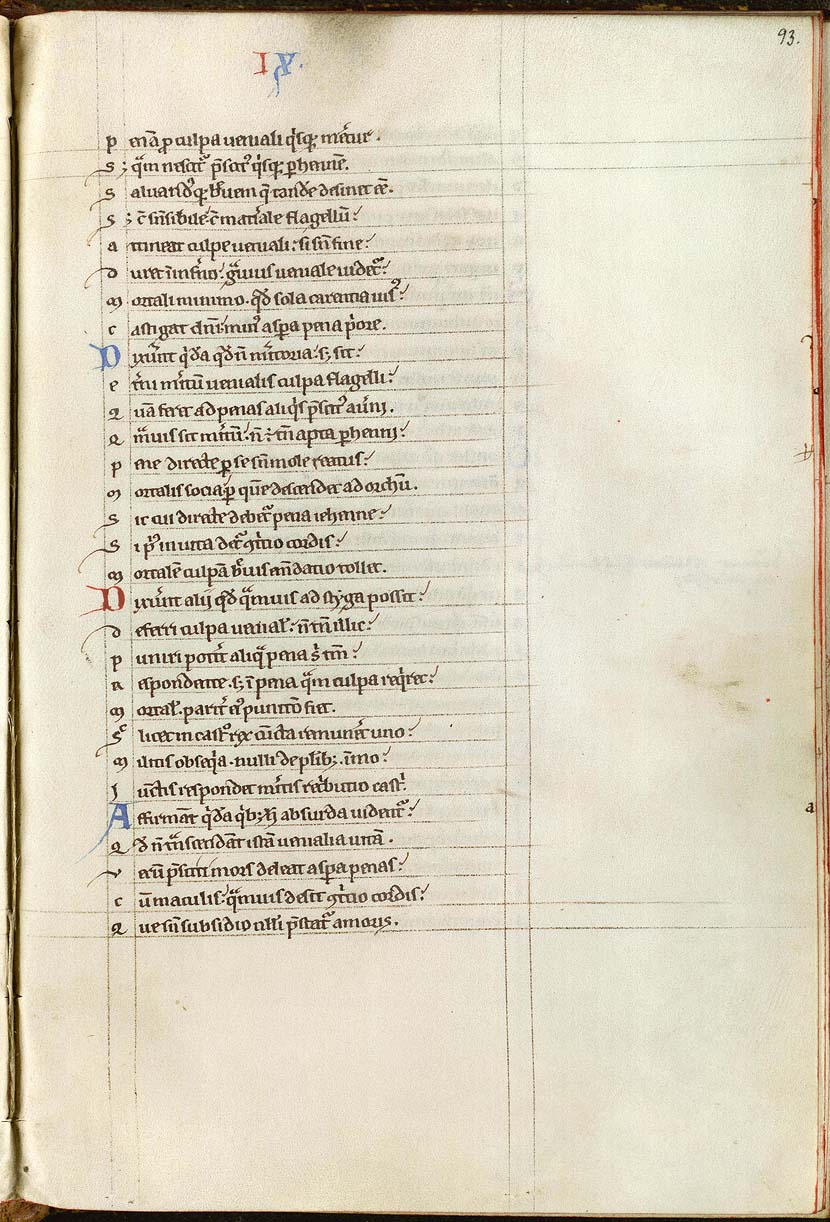 93.
IX.
p enā p culpa ueniali q̄sq; mēťur.
S; q̄m nescit̄ p̄scit' q̄sq; phenne.
S aluand'q; breuem q̄ tand̄e desinet ēē.
S; ē sn̄sibile ē mat̄iale flagellū?
a ttineat culpe ueniali: si sn̄ fine?
d uret in īfr̄no? q̄uis ueniale uidet̄?
m ortali minimo. qd̄ sola carentia uis'?
c astigat dn̄i. min' asp̄a pena p̄ore.
D ixr̄unt q̄da qd̄ n̄ mr̄itoria. s; sit?
e t̄ni mr̄itū uenialis culpa flagelli?
Q uā feret ad penas aliq̄s p̄scit' au̇ni.
Q m̄uis sit mr̄itū. n̄ ē tn̄ apta phenni?
p ene directe p se sn̄ mole reatus?
m ortalis socia p quē descendet ad orchū.
S ic cui directe debet̄ pena iehenne?
S i p̄' in uita det̄ ꝯt̄icio cordis?
m ortalē culpā br̄uis em̄datio tollet.
D ixr̄unt alij qd̄ q̄muis ad styga possit?
d eferri culpa uenial'. n̄ tn̄ illic?
p uniri pot̄it aliq̄ pena s; tn̄?
R espondente. s; ī pena q̄m culpa reqr̄et?
m ortal'. parit̄ ei' punitō fiet.
S; licet in cast̄o rex cūcta remunet̄ uno?
m ultis obseq̄a. nulli de plib; īmo?
I unctis respondet mr̄itis ret̄butio cast̄.
A ffirmāt q̄da q̄b; h̄ absurda uident̄?
Q d̄ n̄ t̄nscendāt istā uenialia uitā.
v erū p̄sciti mors deleat asp̄a penas?
c ū maculis. q̄muis desit ꝯt̄icio cordis?
Q ue sn̄ subsidio celi p̄stat̄ amoris.